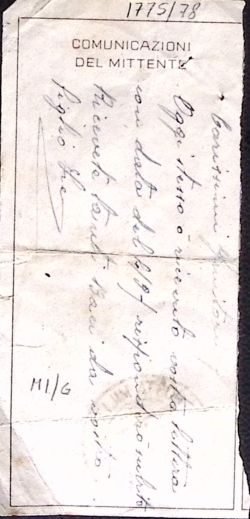 1775/78
COMUNICAZIONI
DEL MITTENTE
Carissimi Genitori
Oggi stesso ò ricevuto vostra lettera
con data del risponderò subito
Ricevete tanti Baci da vostro
figlio
MI/G